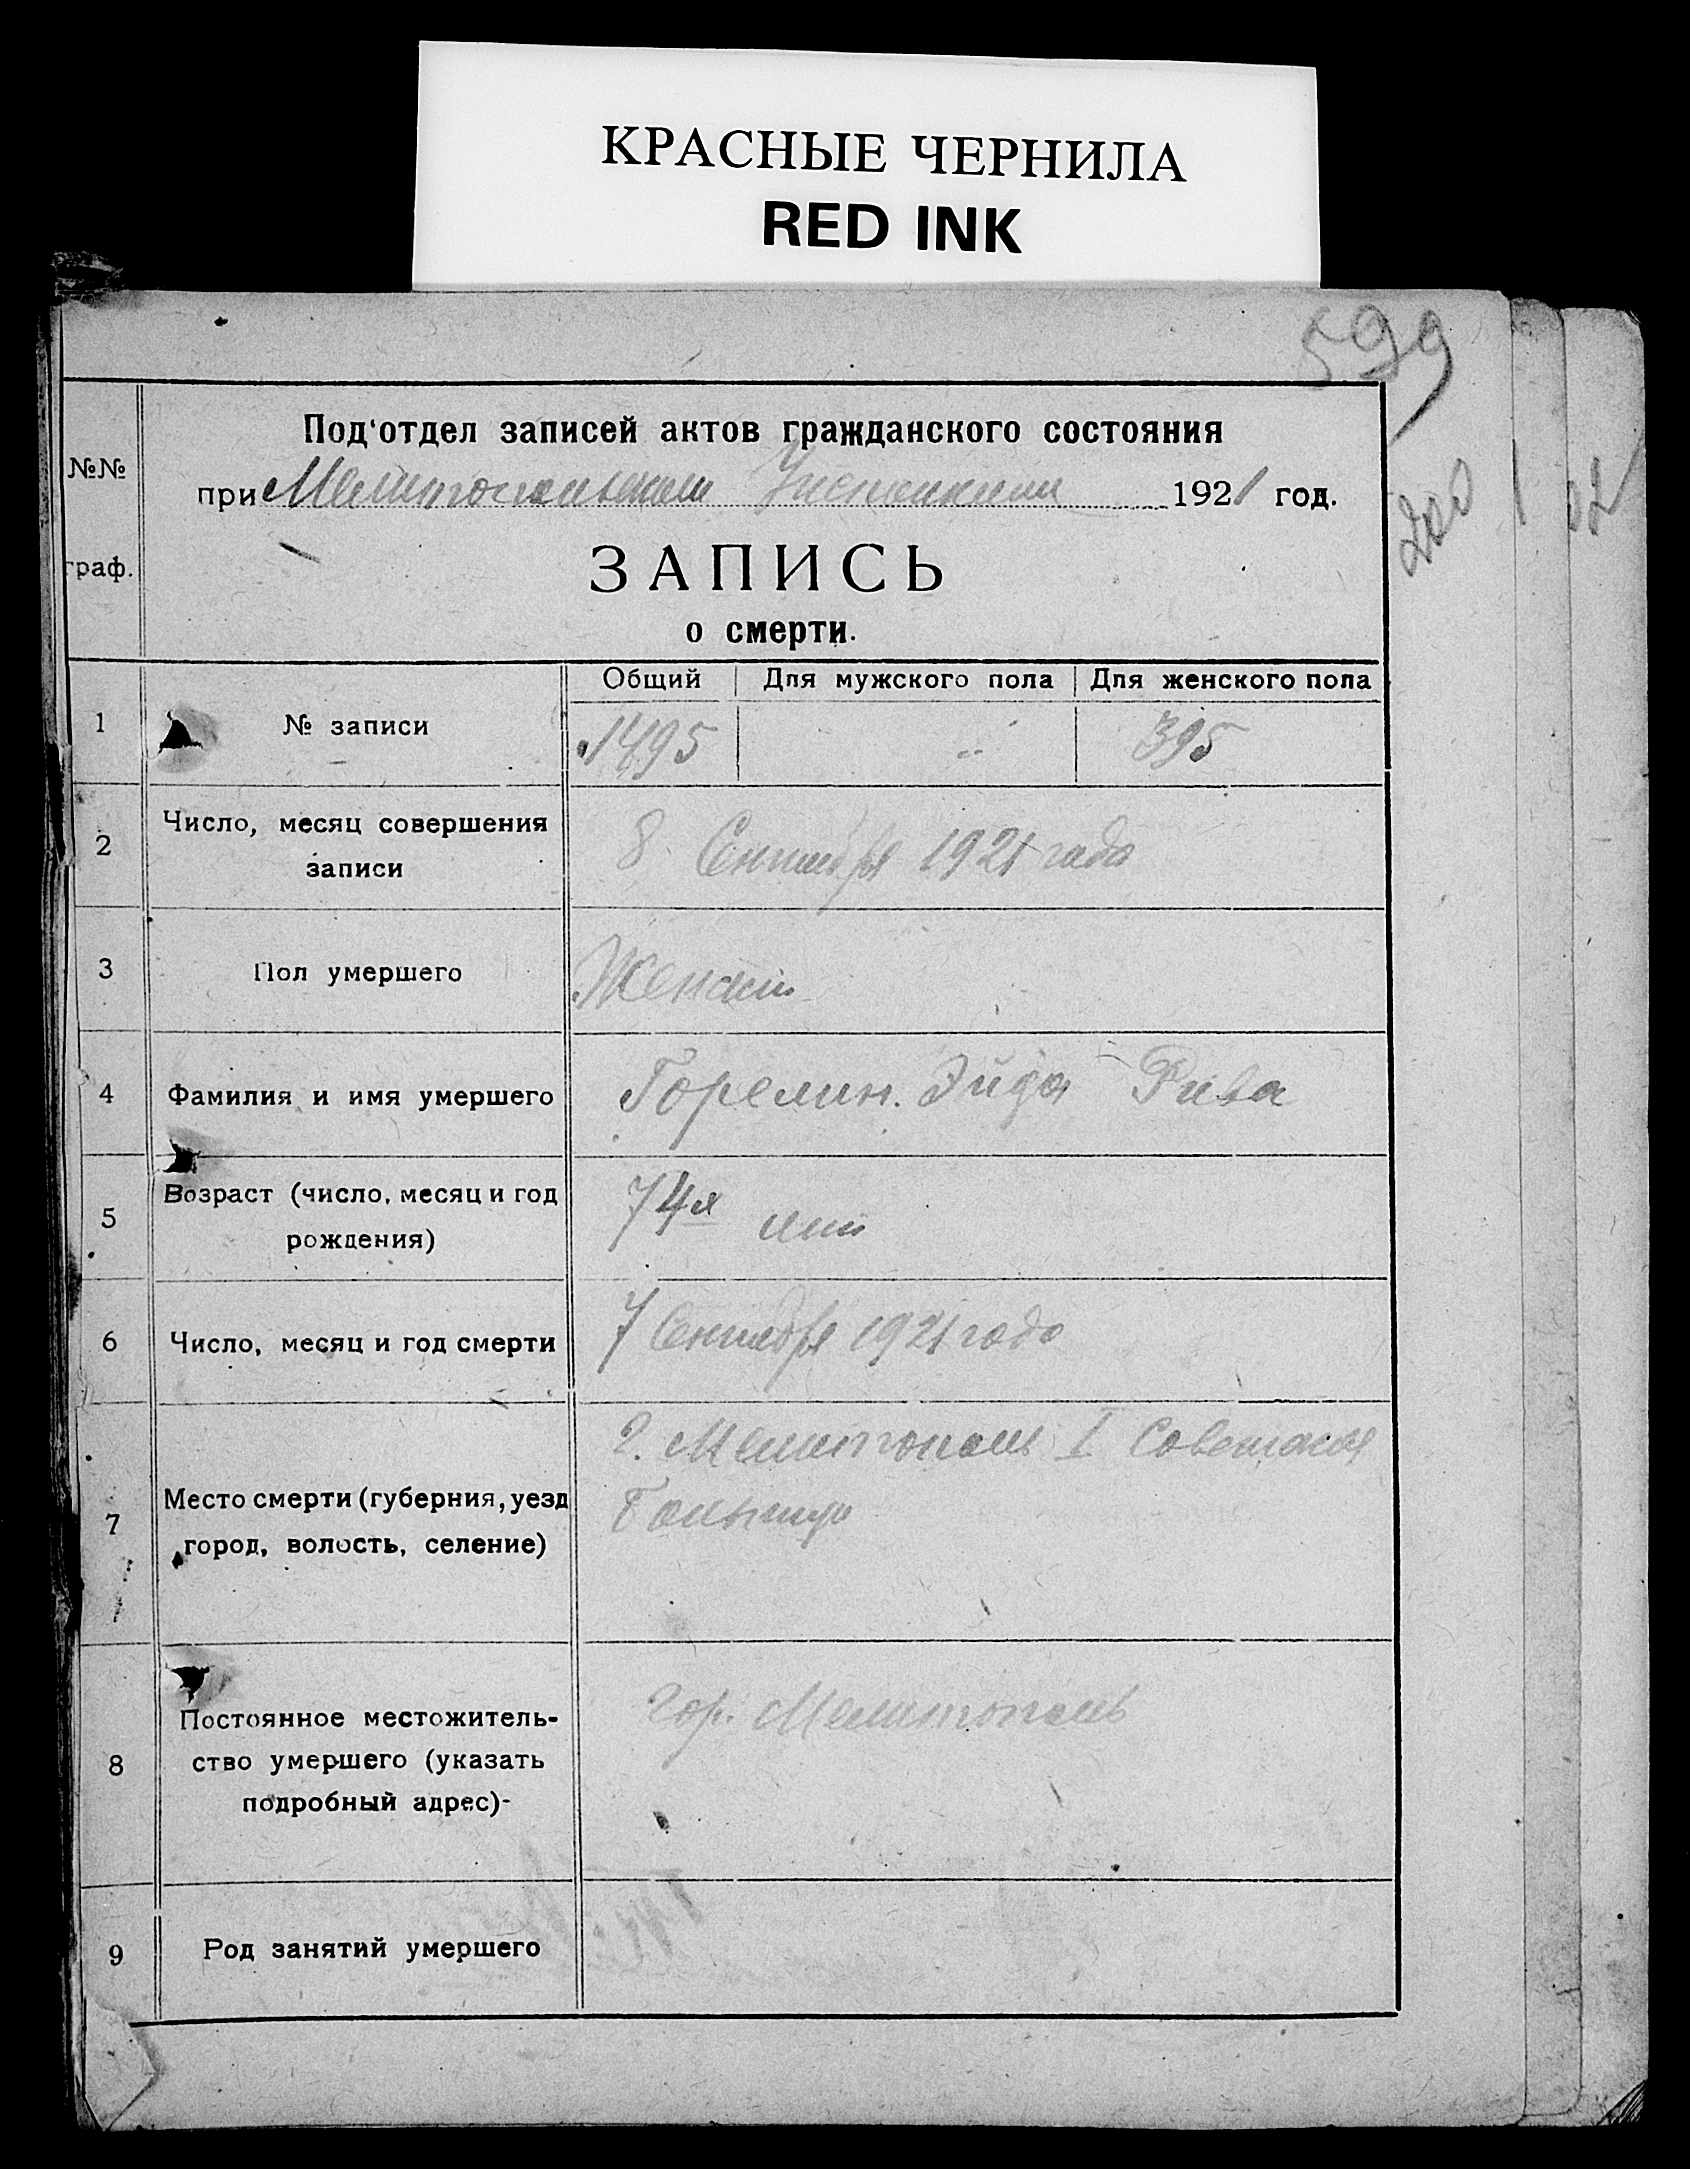 КРАСНЫЕ ЧЕРНИЛА
RED INK
599
Под'отдел записей актов гражданского состояния
№№
при Мелитопольском 1921 год.
200
граф.
ЗАПИСЬ
о смерти.
Общий Для мужского пола Для женского пола
1 № записи 1495 395
2 Число, месяц совершения
записи
8 Сентября 1921 года
3 Пол умершего Женский
4 Фамилия и имя умершего Горелик. Эйда Рива
5 Возраст (число, месяц и год
рождения)
74х лет
6 Число, месяц и год смерти 7 Сентября 1921 года
г. Мелитополь I Советская
7 Место смерти (губерния, уезд
город, волость, селение)
Больница
8 Постоянное местожитель-
ство умершего (указать
подробный адрес)-
гор. Мелитополь
9 Род занятий умершего